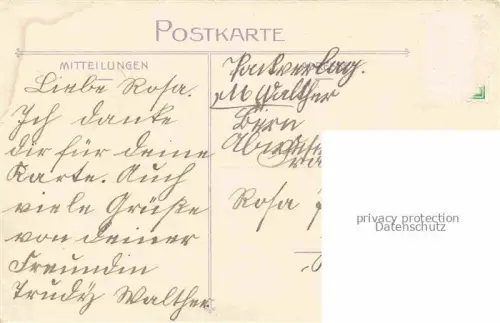 POSTKARTE
MITTEILUNGEN
Liebe Rosa.
Ich danke
dir für deine
Karte. Auch
viele Grüße
von deiner
Freundin
Trudy Walther
M Walther
Bern
Rosa
privacy protection
Datenschutz